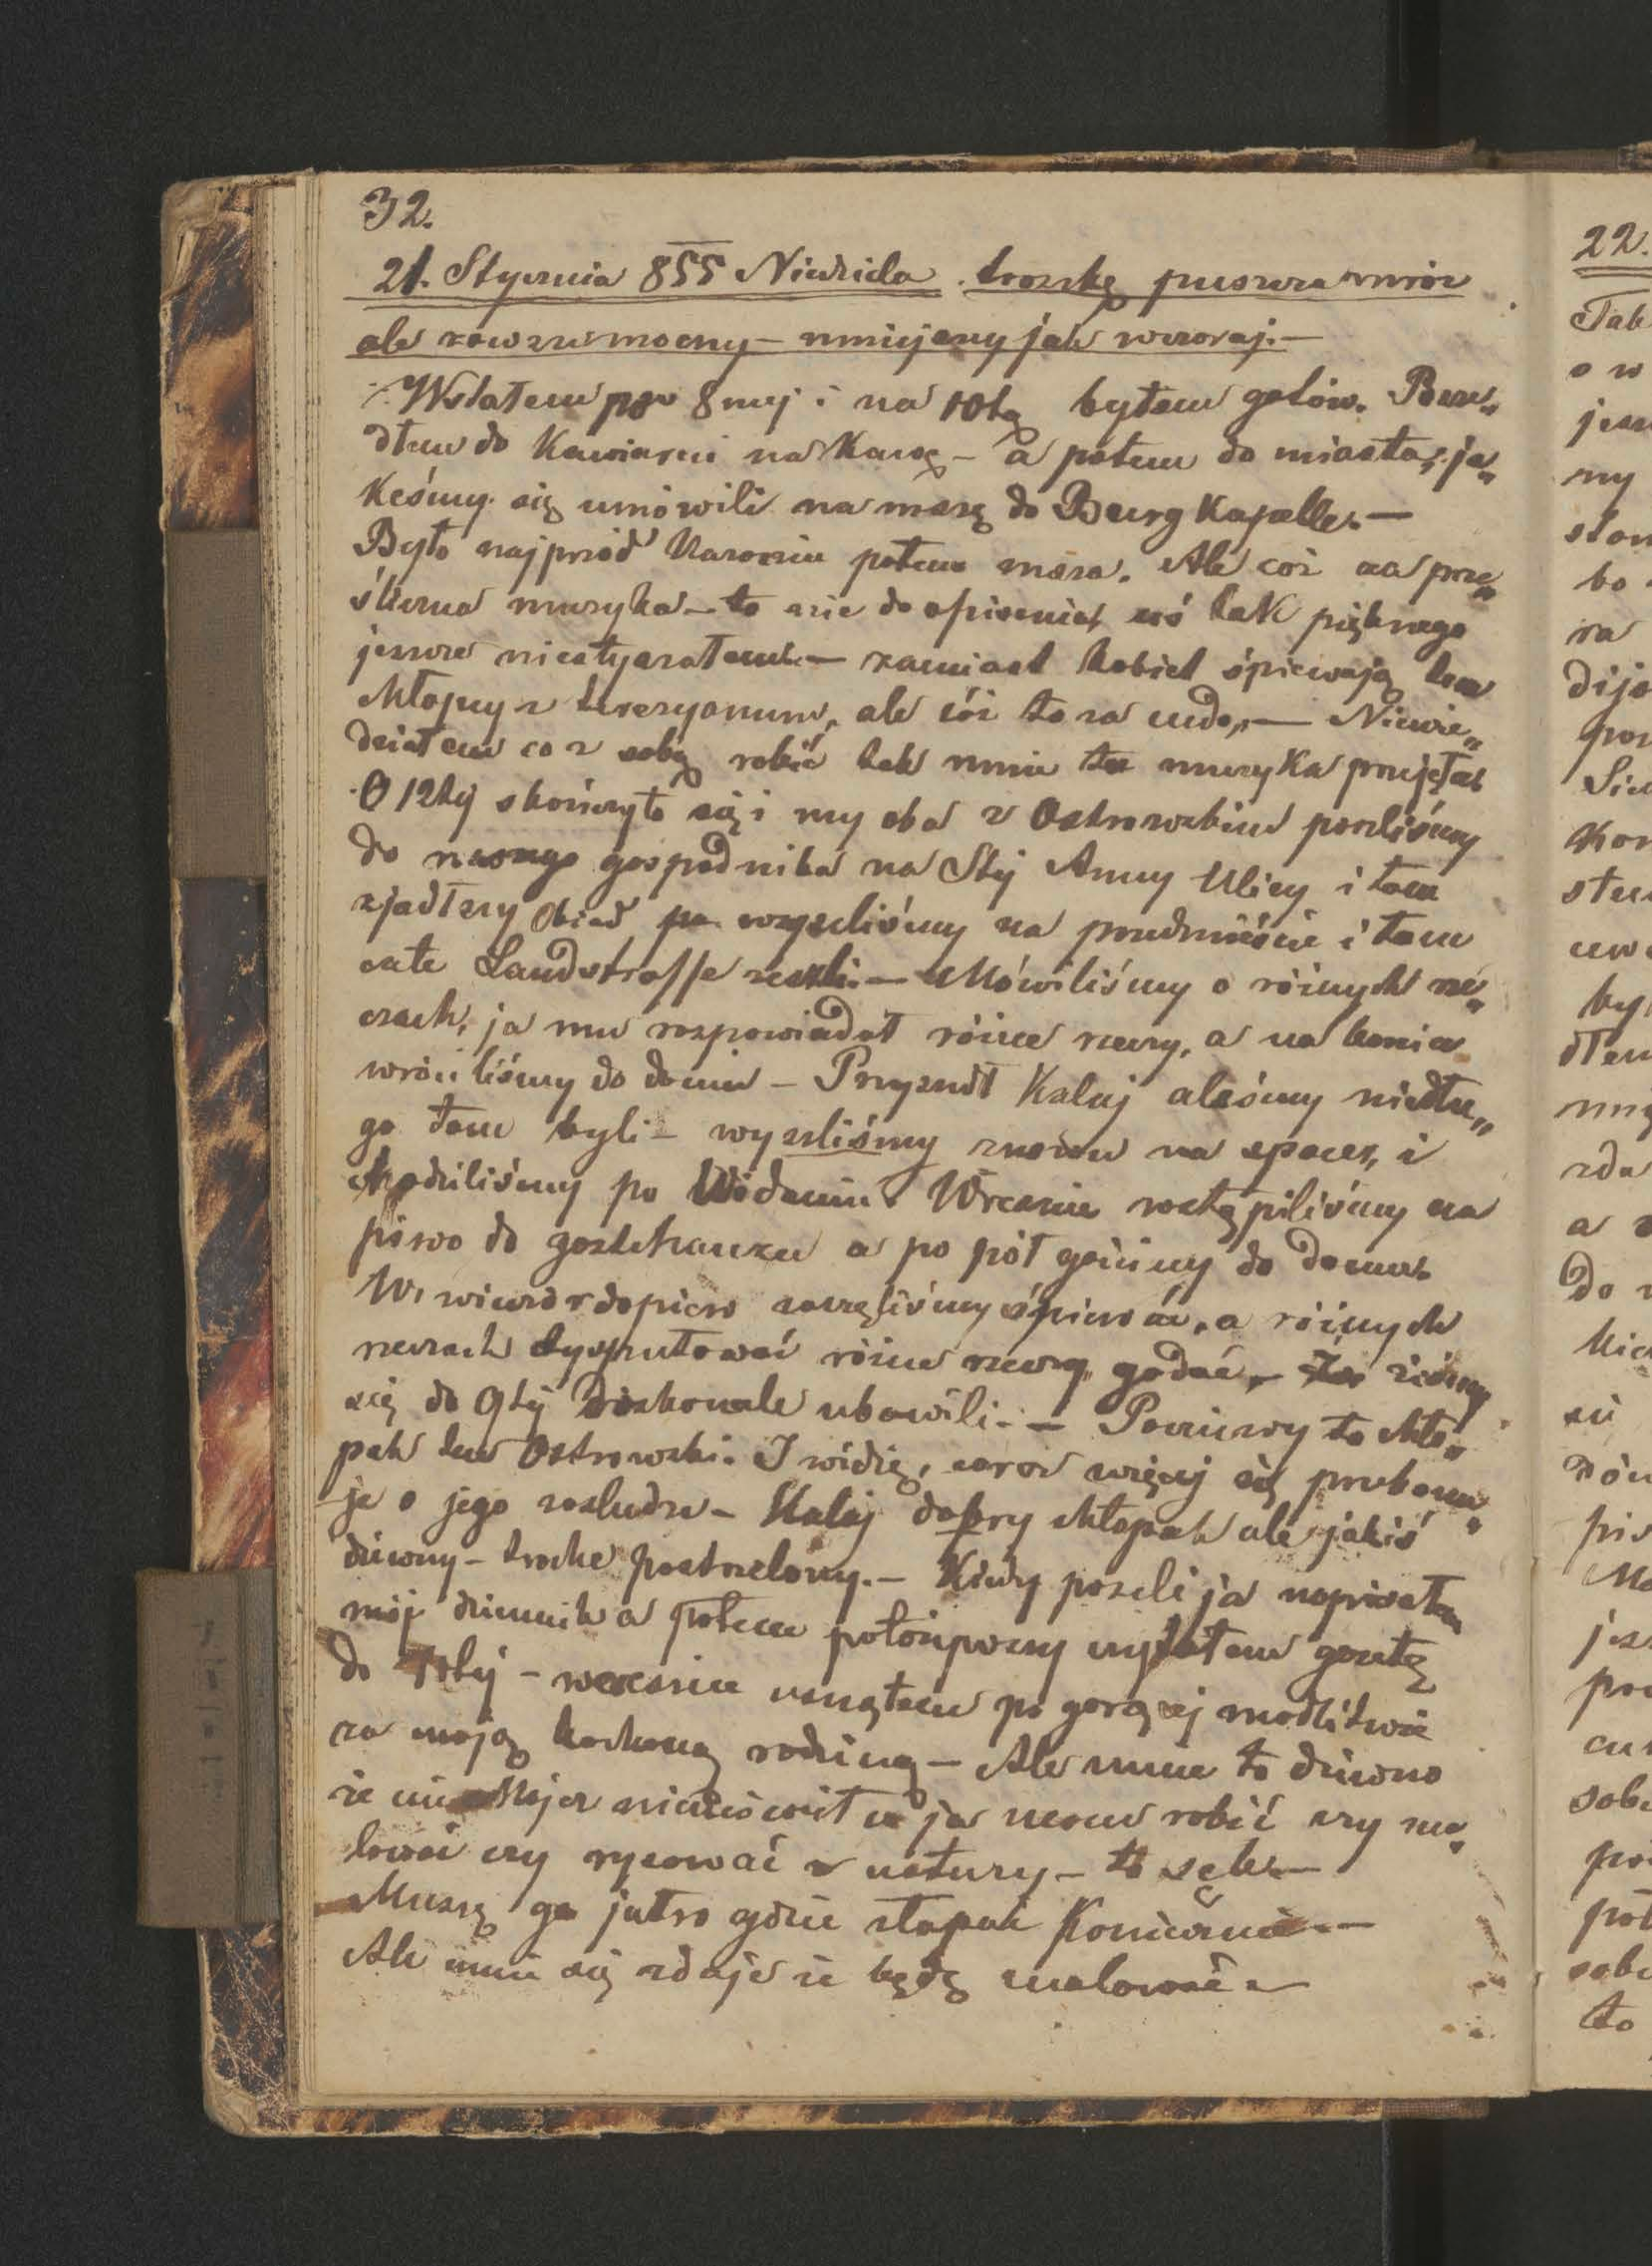 32.
21. Stycznia 855 Niedziela. troszkę puszcza mróz
ale zawsze mocny – mniejszy jak wczoraj. –
Wstałem po 8mej i na 10tą byłem gotów. Posze„
dłem do Kawiarni na Kawę – a potem do miasta, ja„
keśmy się umówili na mszę do Burg Kapelle. –
Było najprzód Kazanie potem msza. Ale cóż za prze„
śliczna muzyka – to nie do opisania, coś tak pięknego
jeszcze niesłyszałem. – zamiast kobiet śpiewają tam
chłopcy z terezyanum, ale cóż to za cudo, – Niewie„
działem co z sobą robić tak mnie ta muzyka przejęła.
O 12tej skończyło się i my oba z Ostrowskim poszliśmy
do naszego gospodnika na Stej Anny Ulicy i tam
zjadłszy obiad wyszliśmy na przedmieście i tam
całe Landstrasse zeszli. – Mówiliśmy o różnych rze„
czach, ja mu rozpowiadał różne rzeczy, a na koniec
wróciliśmy do domu – Przyszedł Kalaj aleśmy niedłu„
go tam byli – wyszliśmy znowu na spacer, i
chodziliśmy po Widniu. Wreszcie wstąpiliśmy na
piwo do gasthauzu a po pół godziny do domu.
W wieczór dopiero zaczęliśmy śpiewać, o różnych
rzeczach dysputować różne rzeczy gadać, – żeśmy
się do 9tej doskonale ubawili. – Poczciwy to chło„
pak ten Ostrowski. I widzę, coraz więcej się przekonu„
je o jego zasłudze – Kalaj dobry chłopak ale jakiś
dziwny – trochę postrzelony. – Kiedy poszli ja napisałem
mój dziennik a potem położywszy czytałem gazetę
do 10tej – wreszcie usnąłem po gorącej modlitwie
za moją kochaną rodzinę – Ale mnie to dziwno
że mi Majer nic co ja mam robić czy ma„
lować czy rysować z natury – to sęk. –
Muszę go jutro gdzie złapać Koniecznie. –
Ale mnie się zdaje że będę malować. –
22.